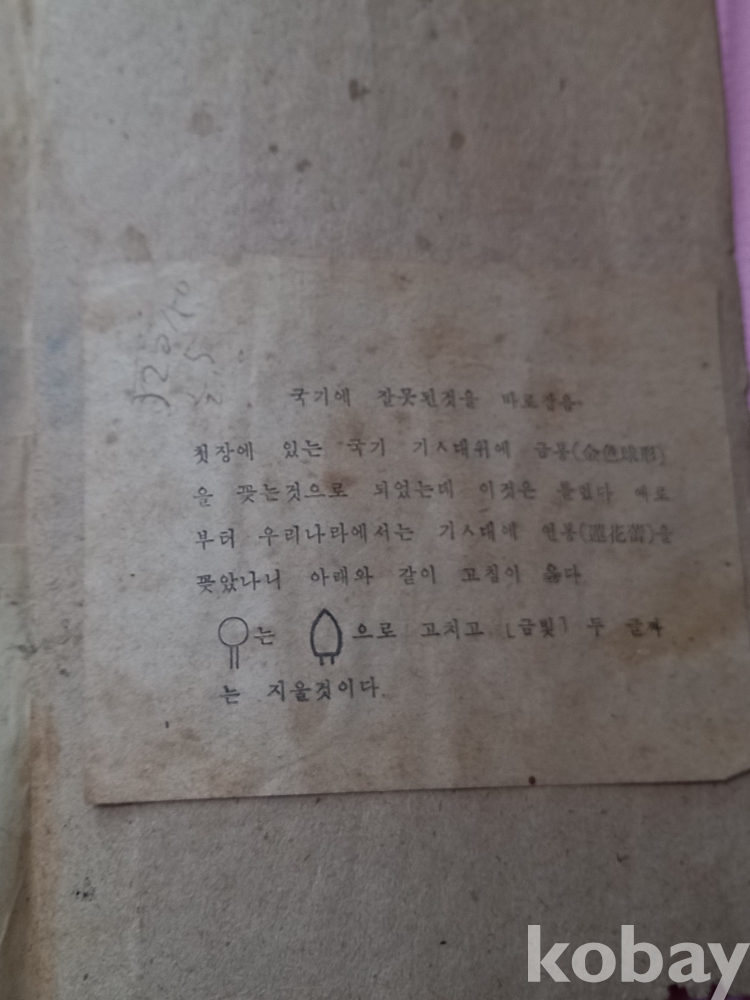 국기에 잘못된것을 바로잡음
첫장에 있는 국기 기ㅅ대위에 금봉(金色球形)
을 꽂는것으로 되었는데 이것은 틀렸다 예로
부터 우리나라에서는 기ㅅ대에 연봉(蓮花蕾)을
꽂았나니 아래와 같이 고침이 옳다
는 으로 고치고, [금빛] 두 글자
는 지울것이다.
kobay